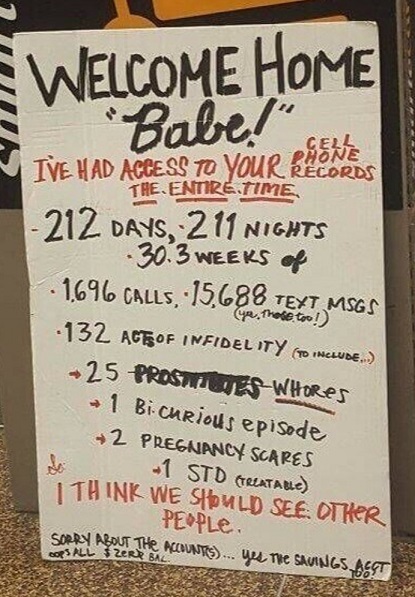 WELCOME HOME
"Babe!"
I'VE HAD ACCESS TO YOUR CELL PHONE RECORDS
THE ENTIRE TIME.
- 212 DAYS, · 211 NIGHTS
· 30.3 WEEKS of
· 1,696 CALLS, · 15,688 TEXT MSGS
(yes, those too!)
· 132 ACTS OF INFIDELITY (TO INCLUDE...)
→ 25 PROSTITUTES WHORES
→ 1 Bi-curious episode
→ 2 PREGNANCY SCARES
→ 1 STD (TREATABLE)
So
I THINK WE SHOULD SEE OTHER
PEOPLE.
SORRY ABOUT THE ACCOUNT(S)... yes THE SAVINGS ACCT TOO!
OOPS ALL $ ZERO BAL.